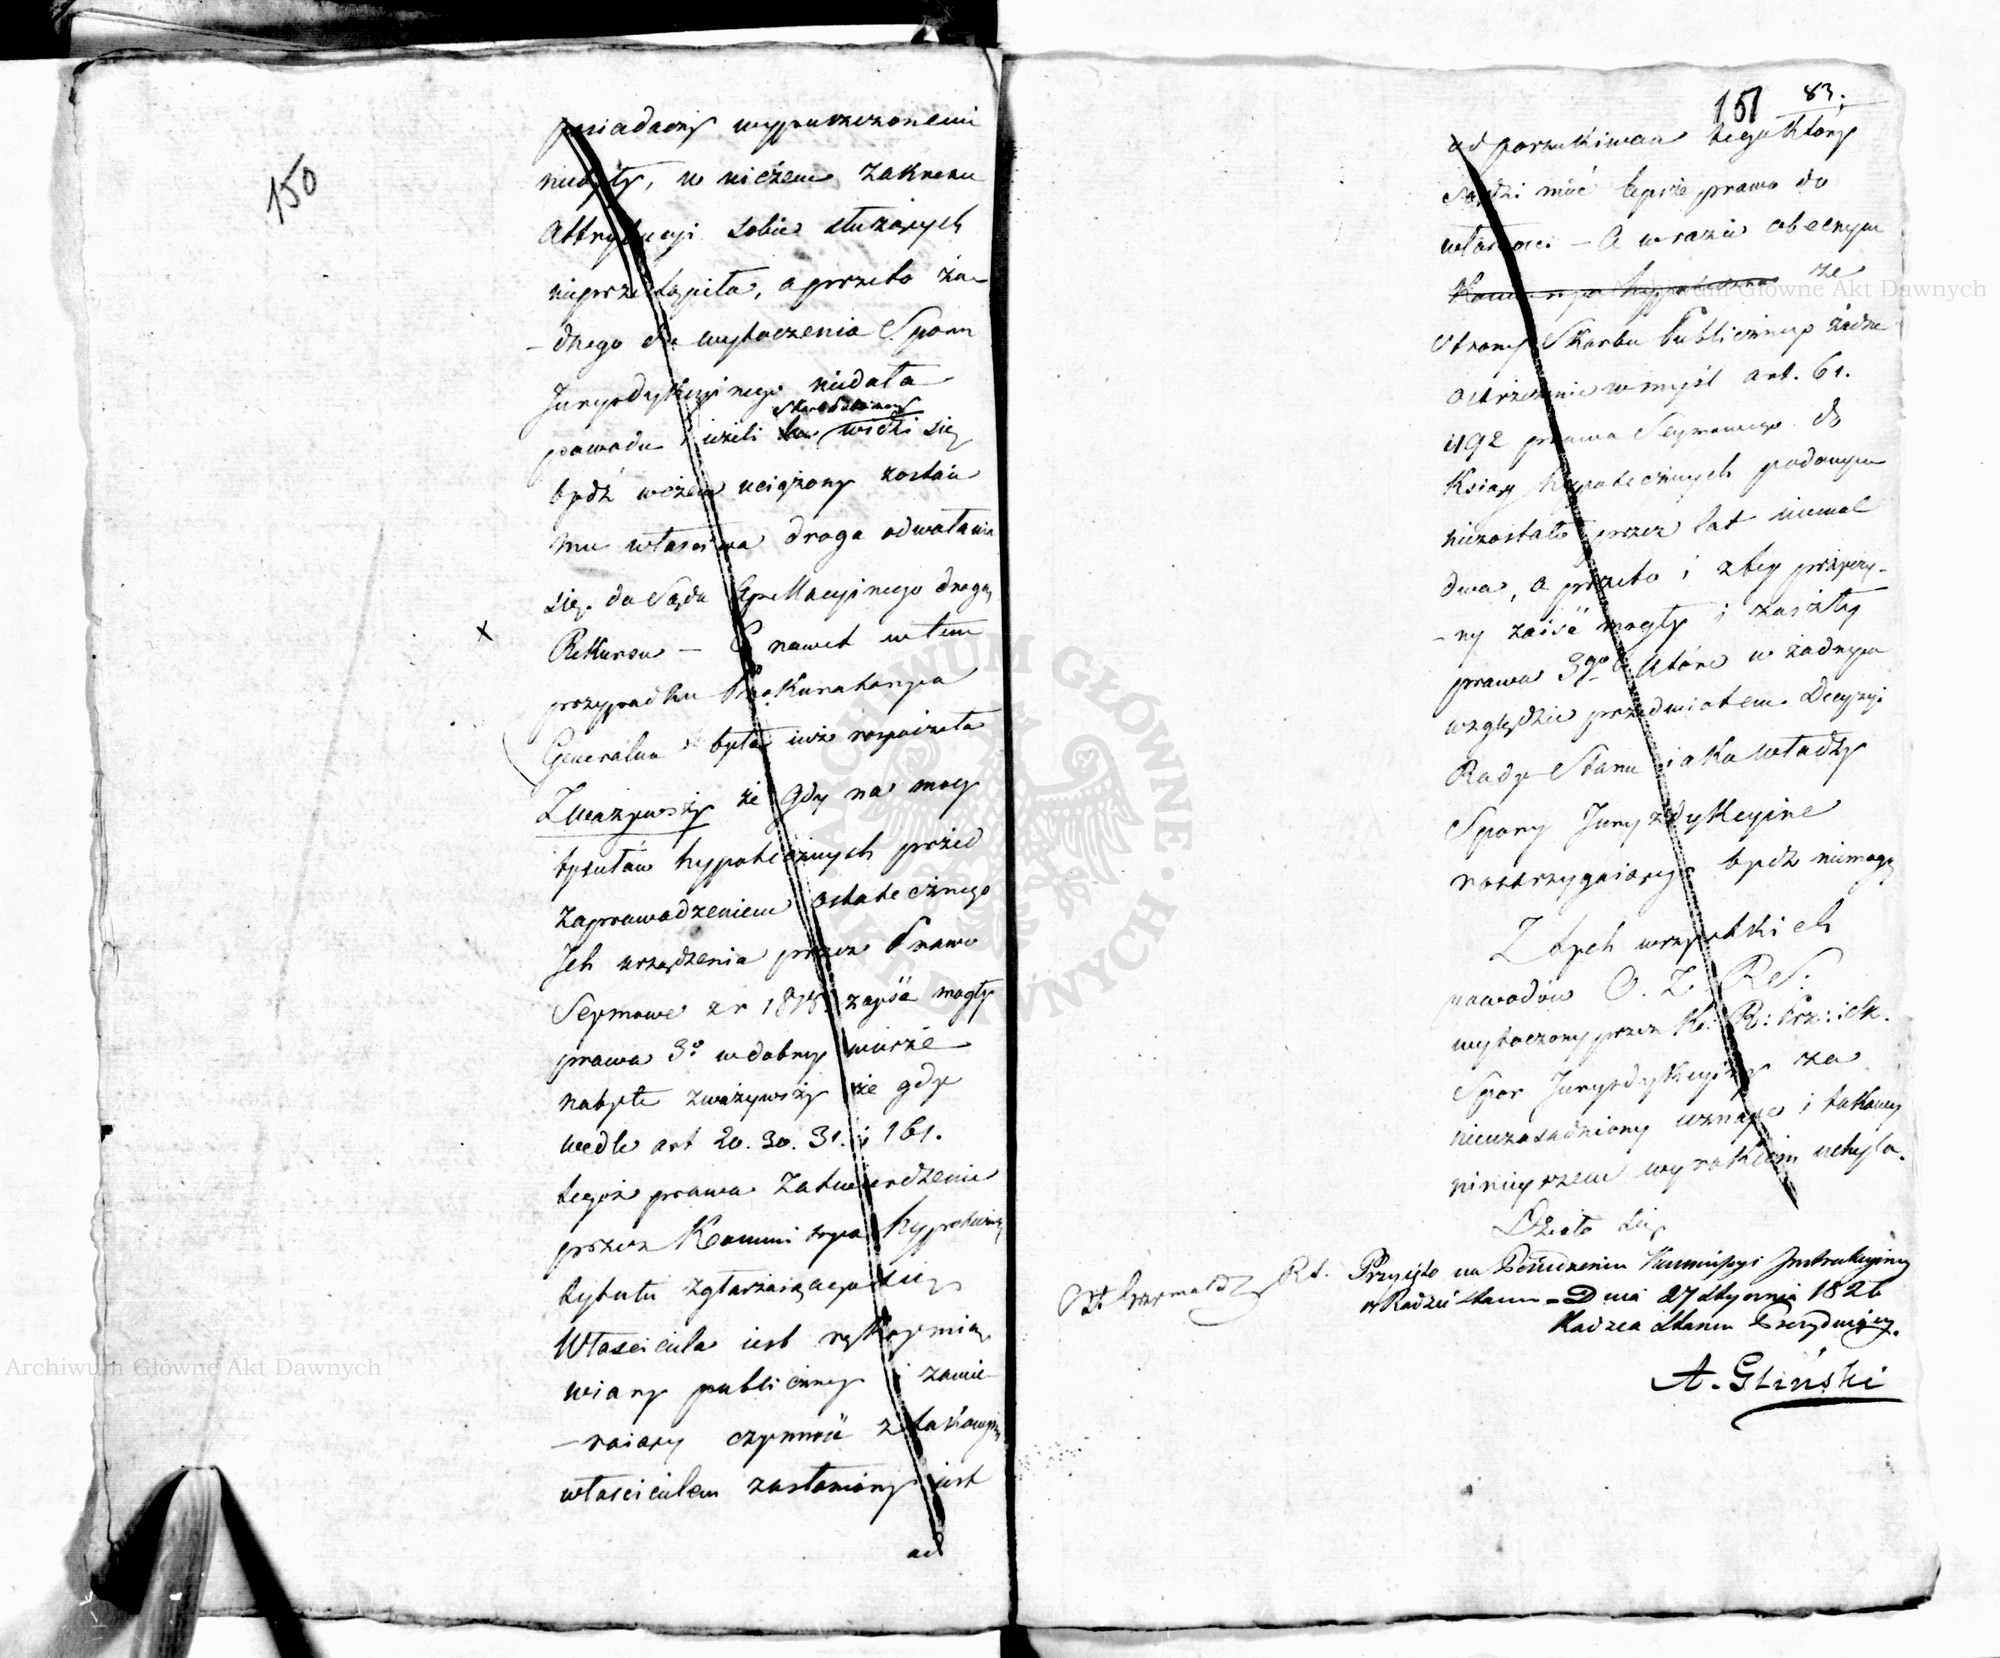 150
posiadaczy wypuszczonemi
nabyty, w niczem zakresu
Attrybucyi sobie służących
nieprzestąpiła, a przeto ża-
-dnego do wytoczenia Sporu
Jurysdykcyinego niedała
powodu i ieżeli Skarb Publiczny widzi się
bydź wczem uciążony zostaie
mu właściwa droga odwołania
się do Sądu Apellacyinego drogą
x
Rekursu — nawet w tem
przypadku Prokuratorya
Generalna była iuż rozpoczęła
Zważywszy że gdy na mocy
tytułów hypotecznych przed
zaprowadzeniem ostatecznego
Ich urządzenia przez Prawo
Seymowe z r 1818. zayść mogły
prawa 3º w dobrey wierze
nabyte zważywszy że gdy
wedle art 20. 30. 31. i 161.
tegoż prawa Zatwierdzenie
przez Kommissyą hypoteczną
tytułu zgłaszaiącego się
Właściciela iest rękoymią
wiary publiczney i zawie-
-raiący czynność z takowym
właścicielem zasłoniony iest
od
151 83.
od poszukiwań tego który
sądzi mieć lepsze prawo do
własności — A w razie obecnym
Kommissya hypoteczna ze
strony Skarbu Publicznego żadne
ostrzeżenie w myśl art. 61.
i 192 prawa Seymowego do
Ksiąg hypotecznych podanym
niezostało przez lat niemal
dwa, a przeto i z tey przyczy-
-ny zaiść mogły i zaszły
prawa 3go które w żadnym
względzie przedmiotem Decyzyi
Rady Stanu iako władzy
Spory Jurysdykcyine
rozstrzygaiącey bydź niemogą
Z tych wszystkich
powodów O. Z. RS.
wytoczony przez K. R: Prz: i Sk.
Spor Jurysdykcyiny za
nieuzasadniony uznaie i takowy
ninieyszem wyrokiem uchyla.
Działo się
Rt. Przyięto na Posiedzeniu Kommissyi Instrukcyiney
w Radzie Stanu — Dnia 27 Stycznia 1826
Radzca Stanu Prezyduiący.
A. Gliński